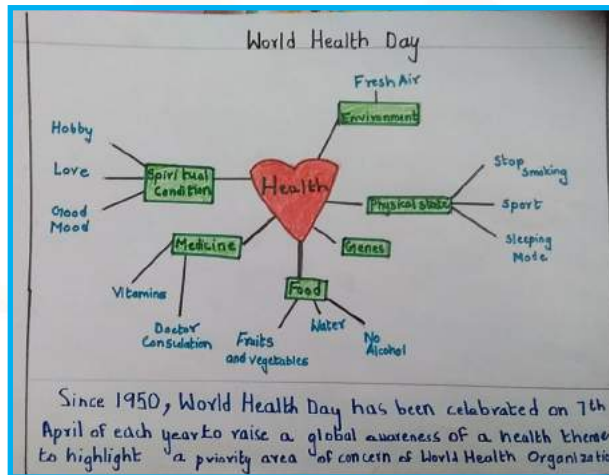 World Health Day
Fresh Air
Environment
Hobby
Love
Good
Mood
Spiritual
Condition
Health
Physical state
Stop
Smoking
Sport
Sleeping
Mode
Medicine
Genes
Vitamins
Doctor
Consulation
Food
Fruits
and vegetables
Water
No
Alcohol
Since 1950, World Health Day has been celebrated on 7th
April of each year to raise a global awareness of a health theme
to highlight a priority area of concern of World Health Organizatio